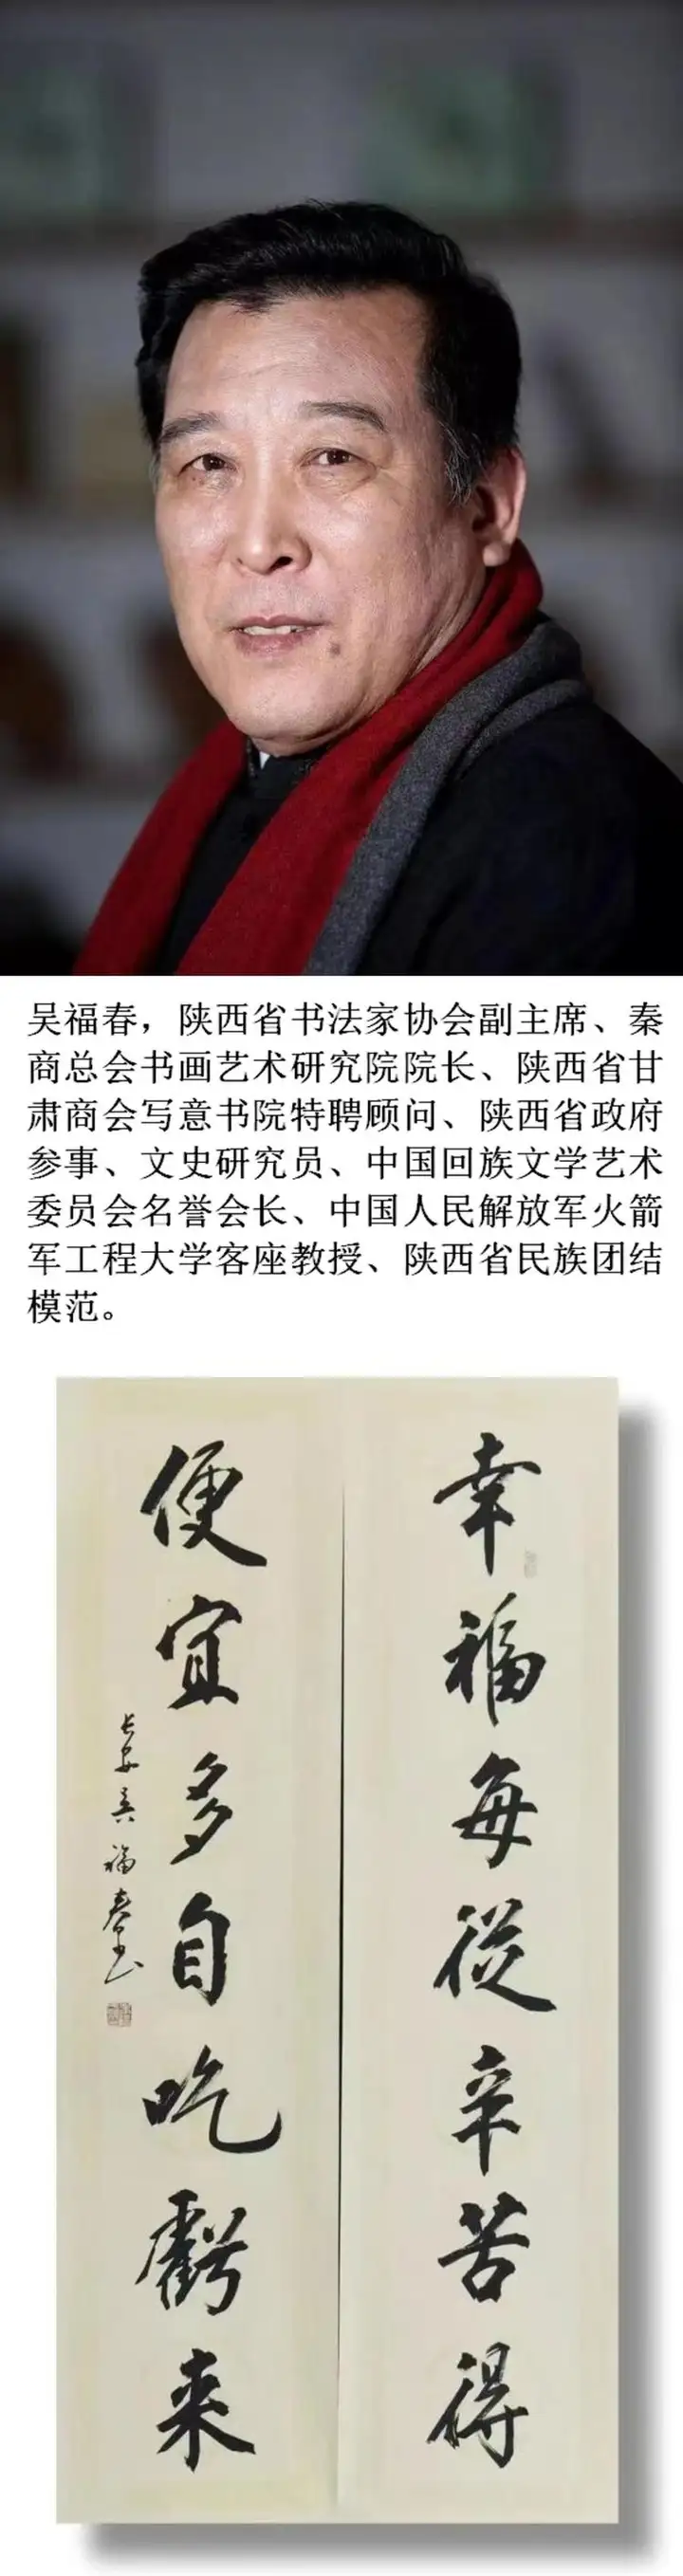 吴福春，陕西省书法家协会副主席、秦
商总会书画艺术研究院院长、陕西省甘
肃商会写意书院特聘顾问、陕西省政府
参事、文史研究员、中国回族文学艺术
委员会名誉会长、中国人民解放军火箭
军工程大学客座教授、陕西省民族团结
模范。
幸福每從辛苦得
便宜多自吃虧来
长安吴福春书